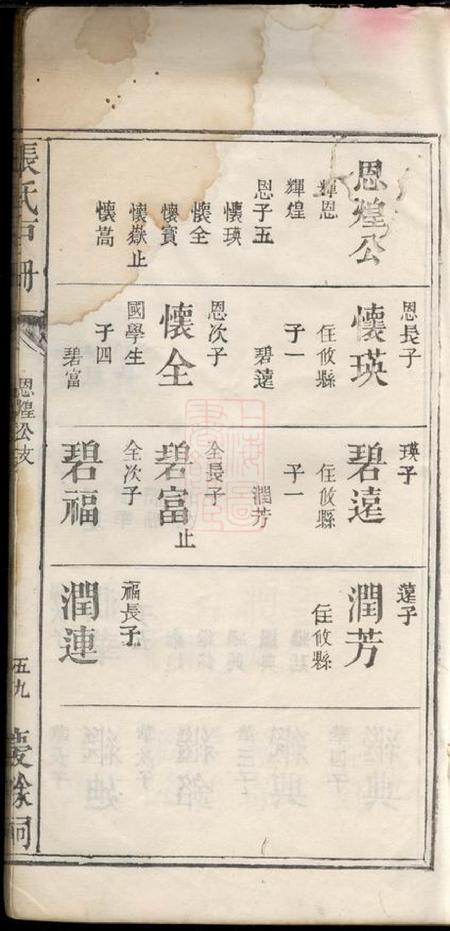 恩煌公
輝恩
輝煌
恩子五
懷瑛
懷全
懷寶
懷嶽止
懷嵩
恩長子
懷瑛
住攸縣
子一
碧遠
恩次子
懷全
國學生
子四
碧富
瑛子
碧遠
住攸縣
子一
潤芳
全長子
碧富止
全次子
碧福
遠子
潤芳
住攸縣
福長子
潤連
張氏
冊
恩煌公支
五九
慶餘祠
上海圖書館藏